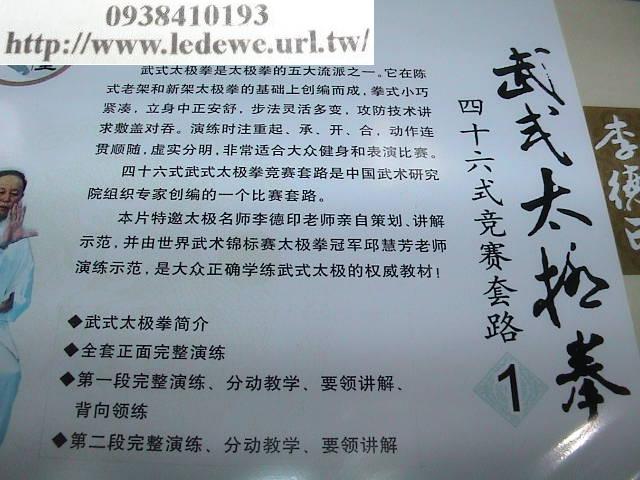 0938410193
http://www.ledewe.url.tw/
武式太极拳是太极拳的五大流派之一。它在陈
式老架和新架太极拳的基础上创编而成，拳式小巧
紧凑，立身中正安舒，步法灵活多变，攻防技术讲
求敷盖对吞。演练时注重起、承、开、合，动作连
贯顺随，虚实分明，非常适合大众健身和表演比赛。
四十六式武式太极拳竞赛套路是中国武术研究
院组织专家创编的一个比赛套路。
本片特邀太极名师李德印老师亲自策划、讲解
示范，并由世界武术锦标赛太极拳冠军邱慧芳老师
演练示范，是大众正确学练武式太极的权威教材！
◆武式太极拳简介
◆全套正面完整演练
◆第一段完整演练、分动教学、要领讲解、
背向领练
◆第二段完整演练、分动教学、要领讲解
武式太极拳
四十六式竞赛套路
1
李德